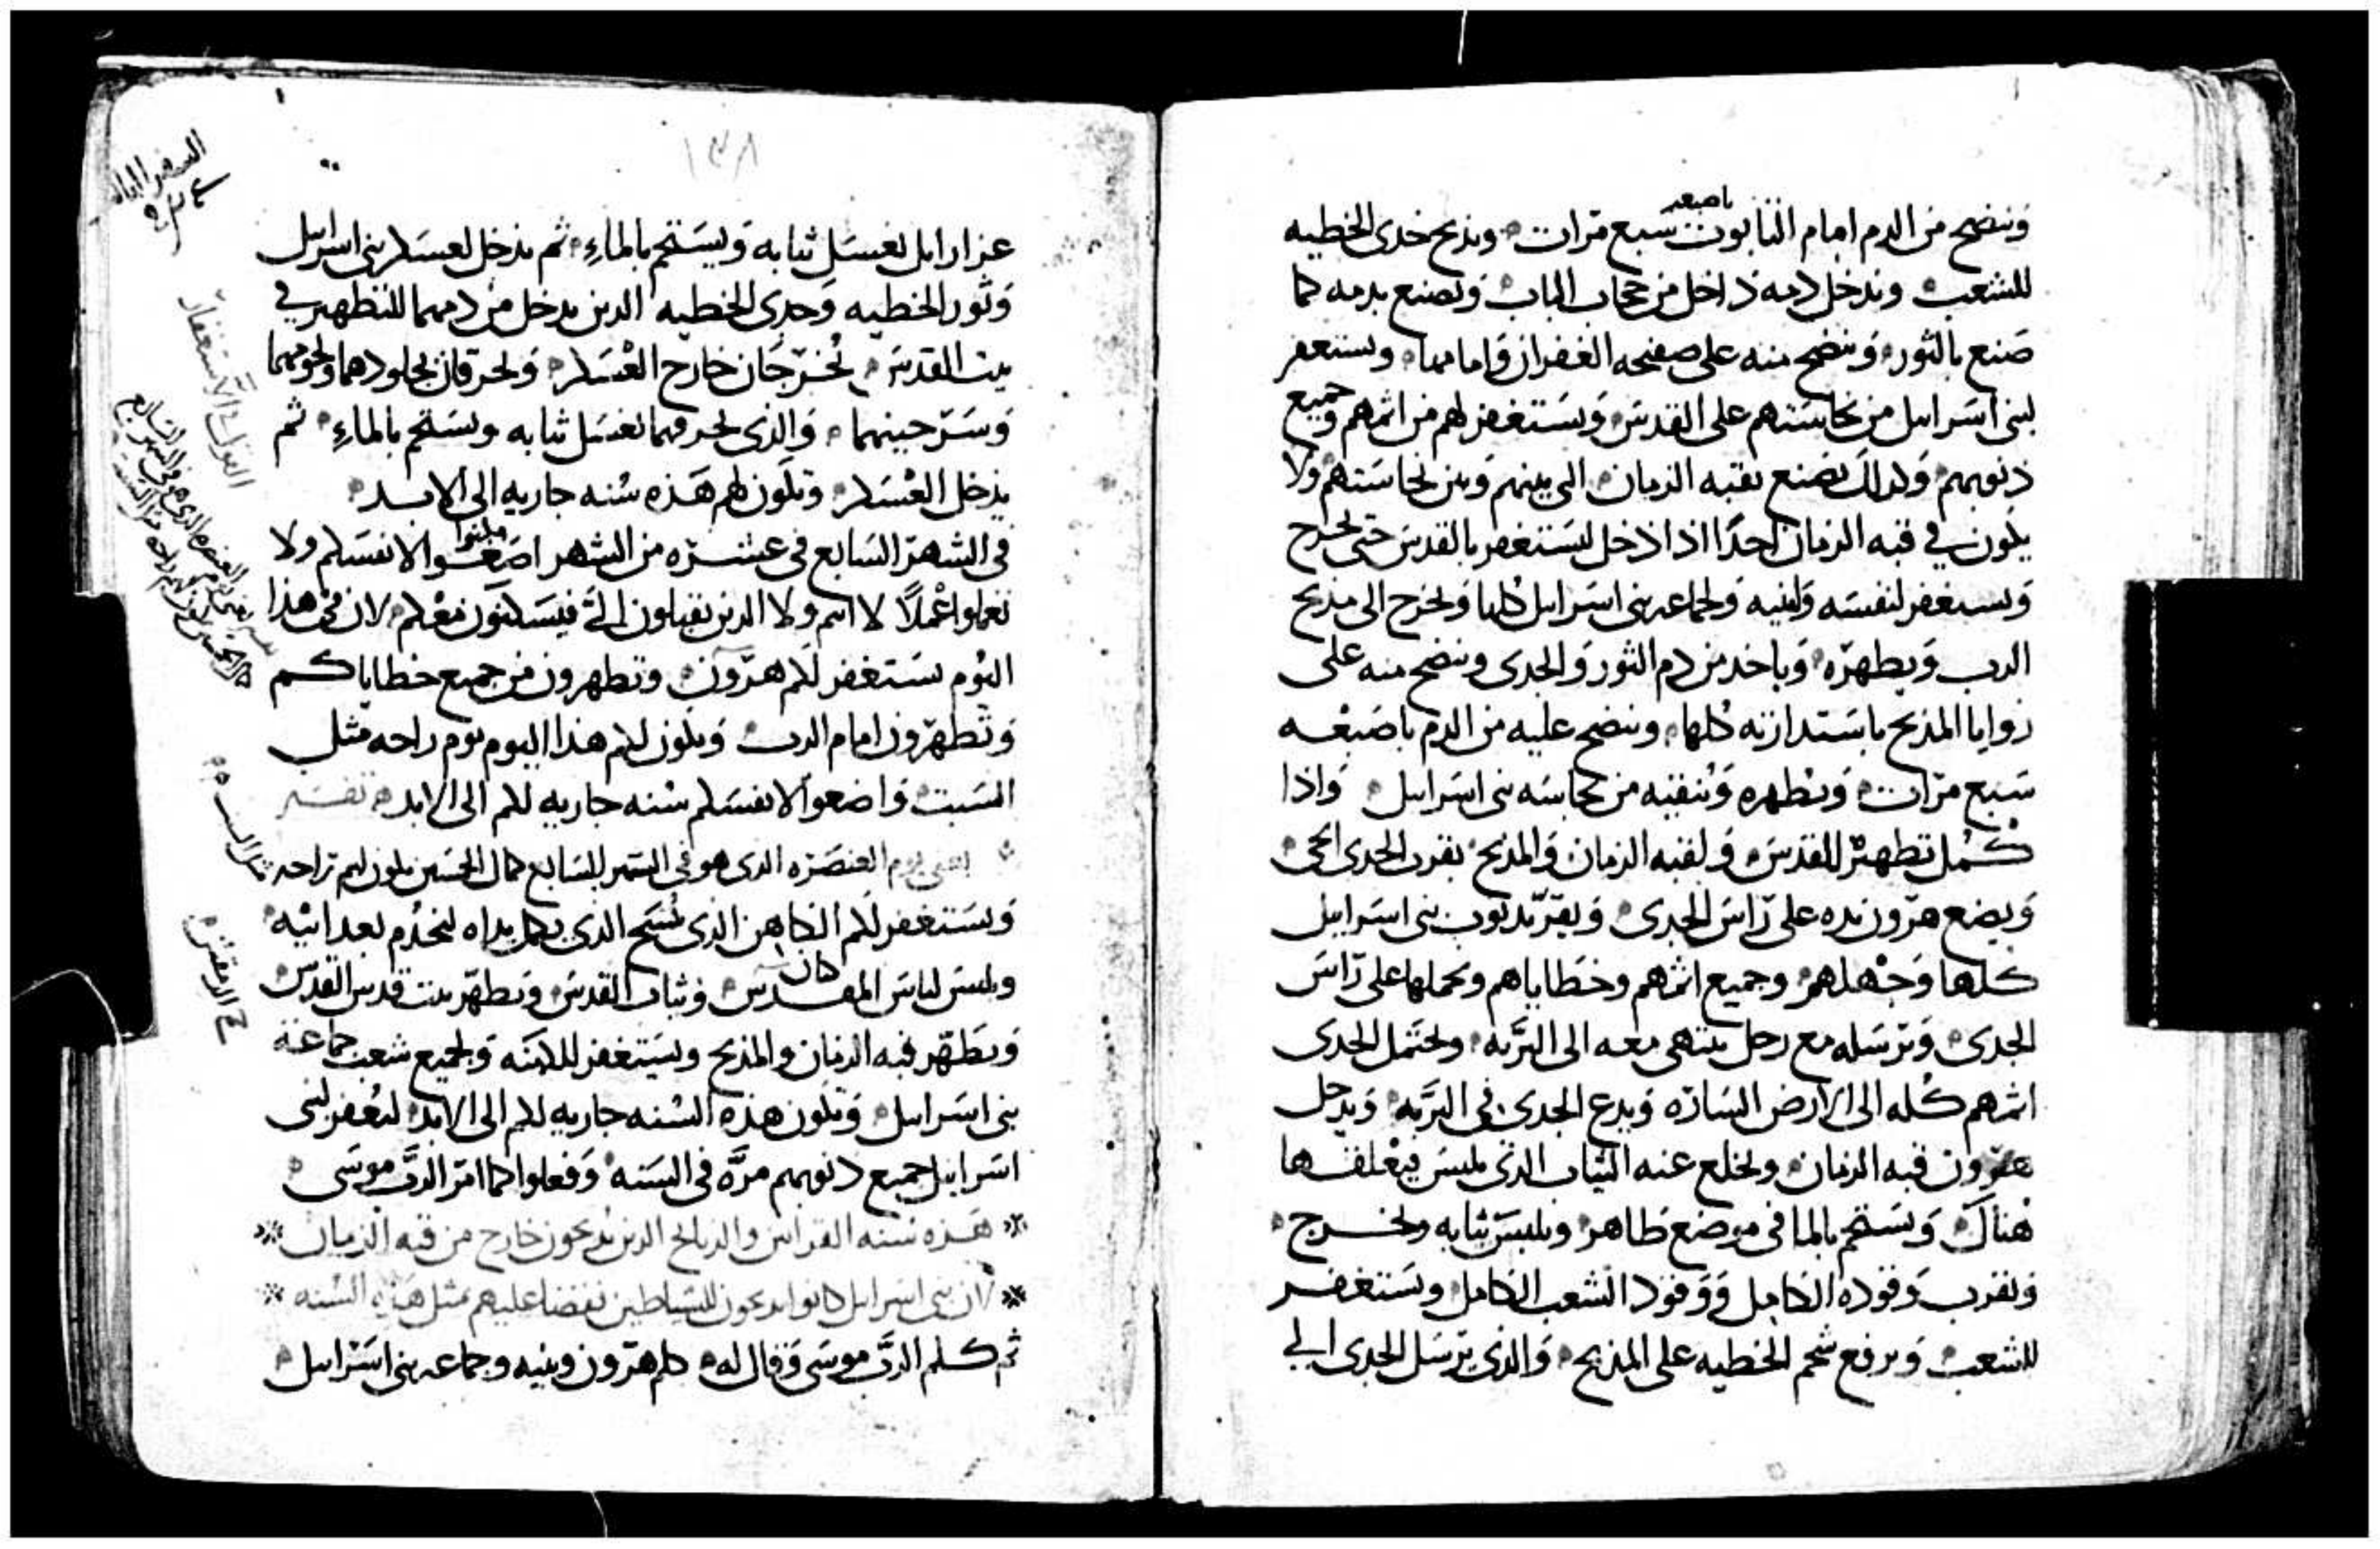 وينضح من الدم امام التابوت باصبعه سبع مرات وىذبح جدي الخطيه
للشعب ويدخل دمه داخل من حجاب الباب ويصنع بدمه كما
صنع بالثور وينضح منه على صفيحه الغفران وامامها ويستغفر
لبني اسرايل من نجاستهم على القدس ويستغفر لهم من اثمهم وجميع
ذنوبهم وكذلك يصنع بقبه الزمان التي بينهم وبين نجاستهم ولا
يكون في قبه الزمان احدًا اذا دخل ليستغفر بالقدس حتى يخرج
ويستغفر لنفسه ولبنيه ولجماعه بني اسرايل كلها ويخرج الى مذبح
الرب ويطهره وياخد من دم الثور والجدي وينضح منه على
زوايا المذبح باستدارته كلها وينضح عليه من الدم باصبعه
سبع مرات ويطهره وينقيه من نجاسه بني اسرايل واذا
كمل تطهير القدس ولقبه الزمان والمذبح يقرب الجدي الحي
ويضع هرون يده على راس الجدي ويقر بذنوب بني اسرايل
كلها وجهلهم وجميع اثمهم وخطاياهم ويحملها على راس
الجدي ويرسله مع رجل يتهى معه الى البريه ويحتمل الجدي
اثمهم كله الى الارض السازه ويدع الجدي في البريه ويدخل
هرون قبه الزمان ويخلع عنه الثياب الذي يلبس فيغلفها
هناك ويستحم بالما في موضع طاهر ويلبس ثيابه ويخرج
ويقرب وقوده الكامل ووقود الشعب الكامل ويستغفر
للشعب ويرفع شحم الخطيه على المذبح والذي يرسل الجدي الي
١٣٨
عزازايل يغسل ثيابه ويستحم بالماءِ ثم يدخل لعسكر بني اسرايل
وثور الخطيه وجدي الخطيه الدين يدخل من دمهما للتطهير في
بيت القدس يخرجان خارج العسكر ويحرقان بجلودهما ولحومهما
وسرجينهما والذي يحرقهما يغسل ثيابه ويستحم بالماءِ ثم
يدخل العسكر وتكون لهم هذه سنه جاريه الى الابد
في الشهر السابع في عشره من الشهر اضعوا لانفسكم ولا
تعملوا عملًا لا انتم ولا الذين يقبلون اليَّ فيسكنون معكم لان في هذا
اليوم يستغفر لكم هرون وتطهرون من جميع خطاياكم
وتطهرون امام الرب ويكون لكم هذا اليوم يوم راحه مثل
السبت واضعوا لانفسكم سنه جاريه لكم الى الابد تفسير
يعني يوم العنصره الذي هو في الشهر السابع كمال الخمسين يكون لهم راحه مثل السبت
ويستغفر لكم الكاهن الذي مسح الذي يكمل يداه ليخدم بعد ابيه
ويلبس لباس المقدس وثياب القدس ويطهر بيت قدس القدس
ويطهر قبه الزمان والمذبح ويستغفر للكهنه ولجميع شعب جماعة
بني اسرايل وتكون هذه السنه جاريه لكم الى الابد ليغفر لبني
اسرايل جميع ذنوبهم مره في السنه وفعلوا كما امر الرب موسى
هذه سنه القرابين والذبايح الذين يذبحون خارج من قبه الزمان
لان بني اسرايل كانوا يذبحون للشياطين فقضا عليهم مثل هذه السنه
ثم كلم الرب موسى وقال له كلم هرون وبنيه وجماعه بني اسرايل